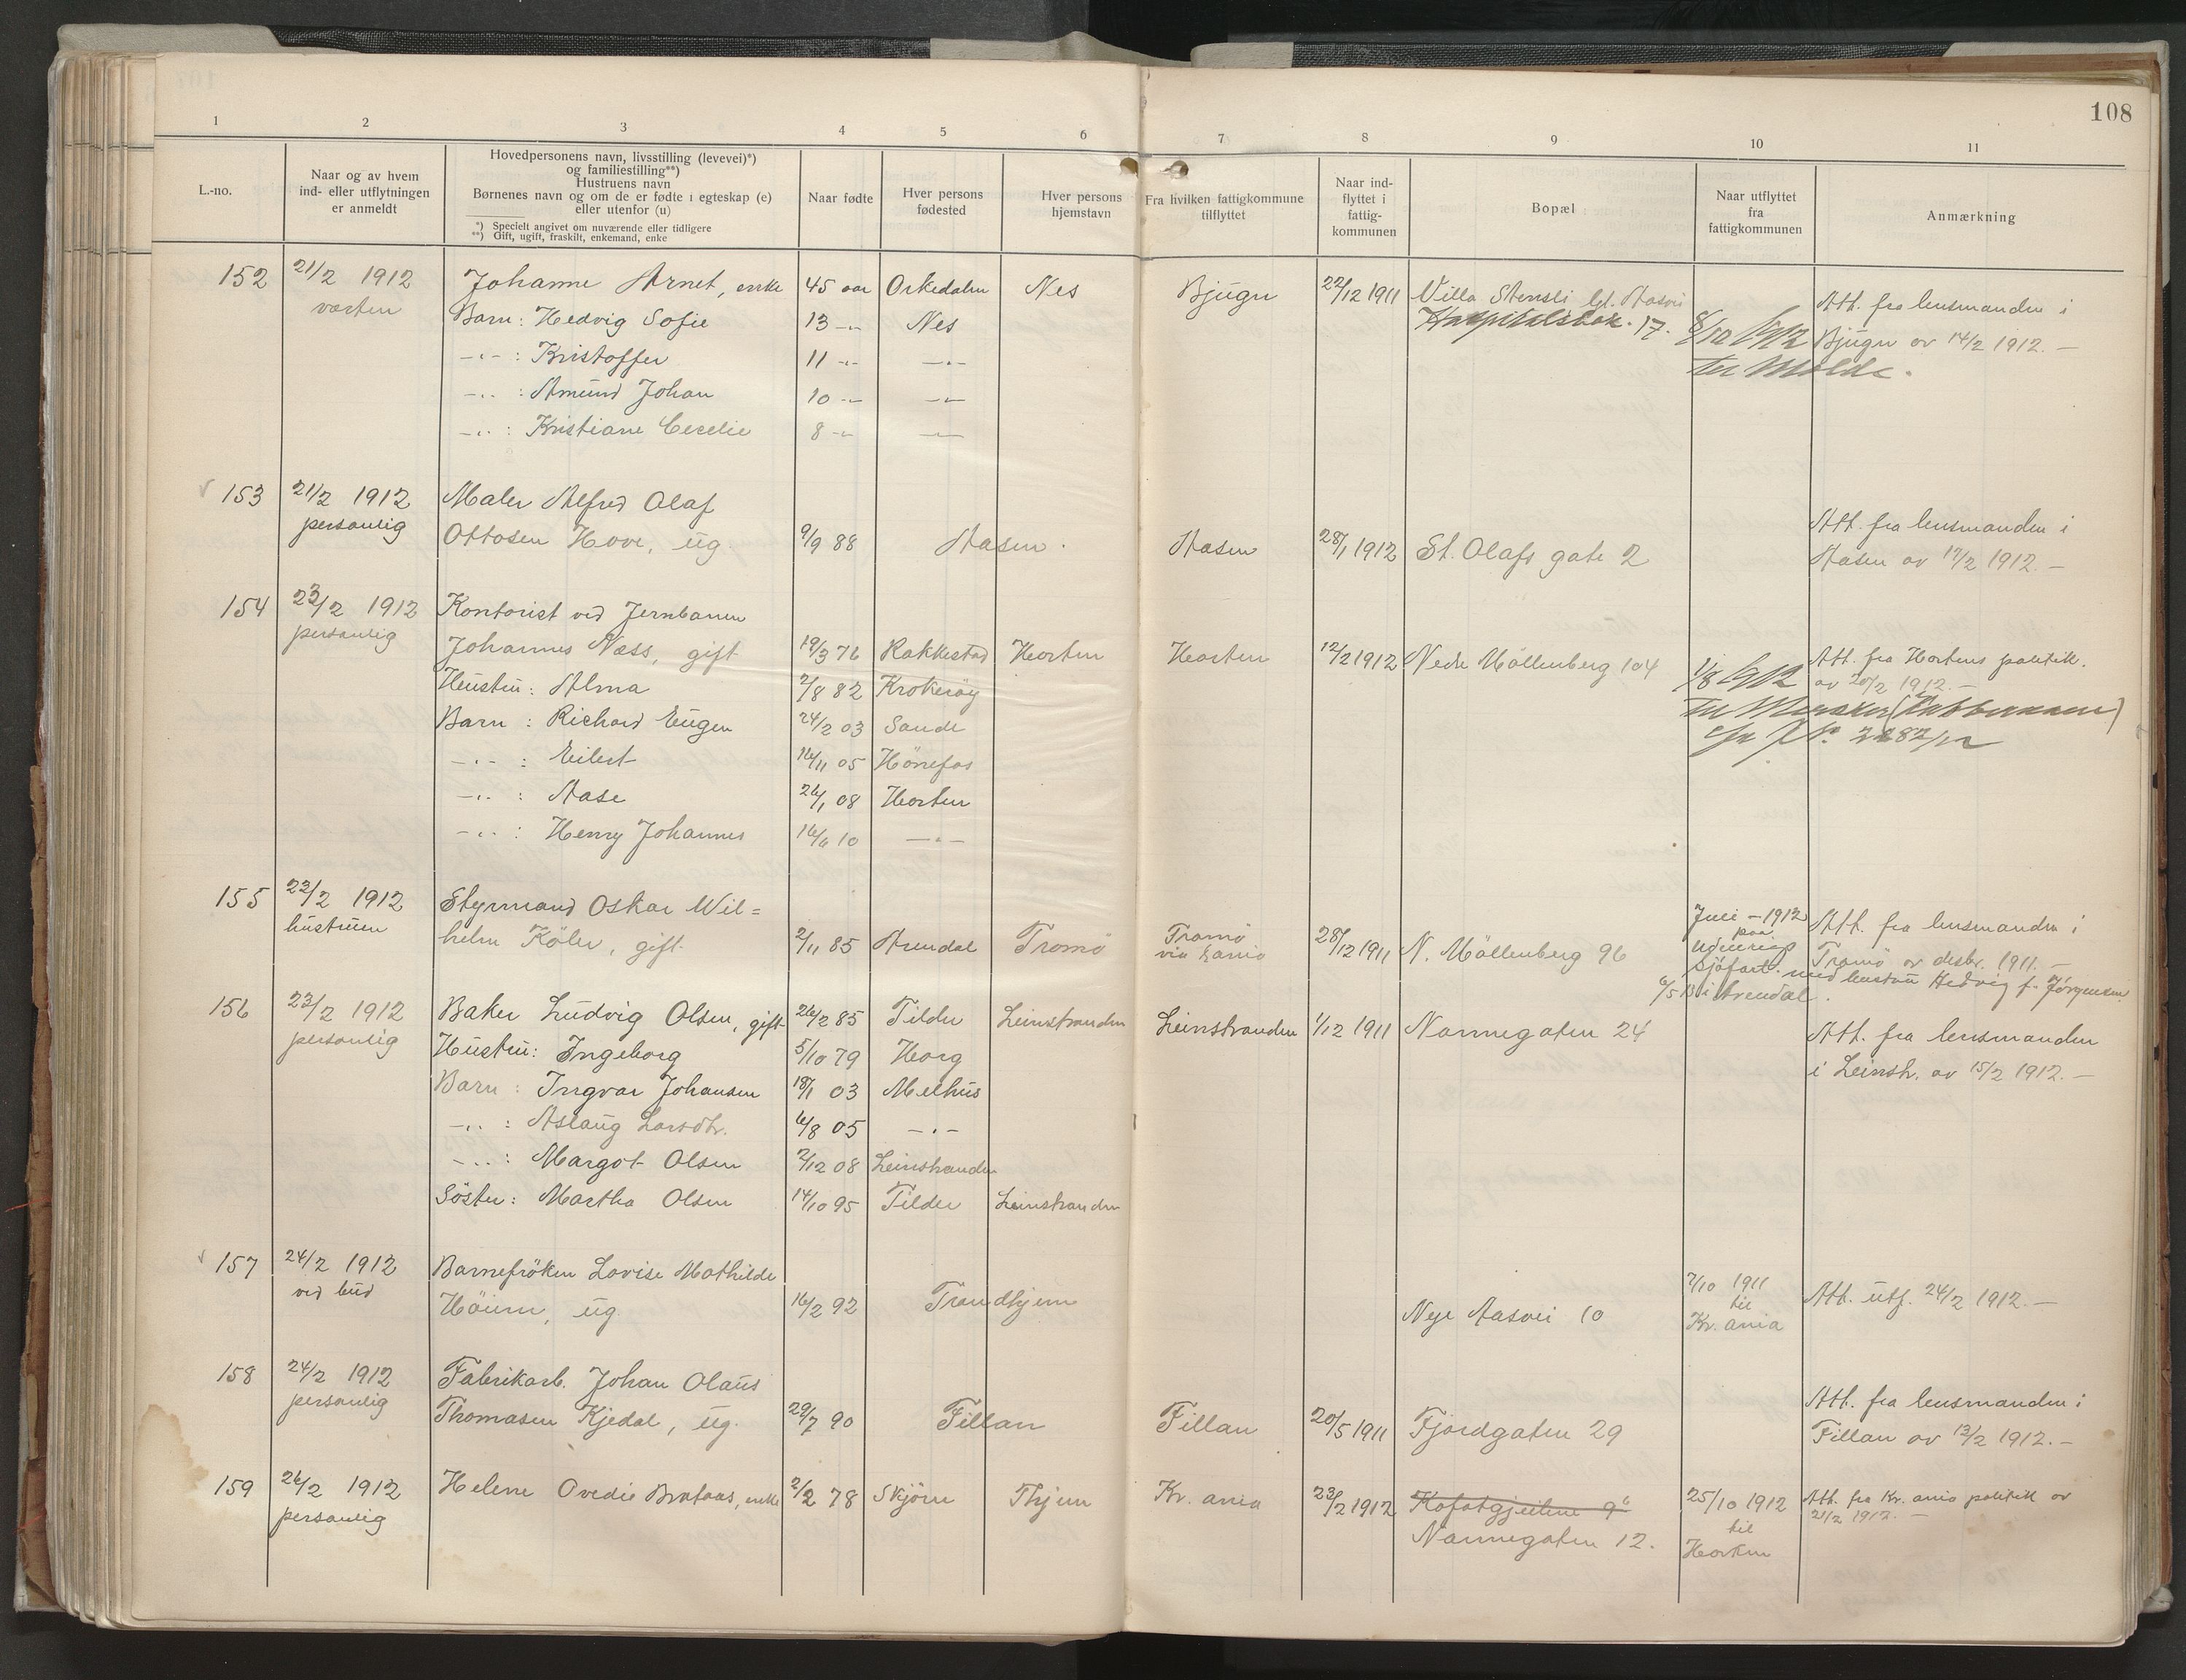 108
1 2 3 4 5 6 7 8 9 10 11
L.-no.
Naar og av hvem
ind- eller utflytningen
er anmeldt
Hovedpersonens navn, livsstilling (levevei)*)
og familiestilling**)
Hustruens navn
Børnenes navn og om de er fødte i egteskap (e)
eller utenfor (u)
*) Specielt angivet om nuværende eller tidligere
**) Gift, ugift, fraskilt, enkemand, enke
Naar fødte
Hver persons
fødested
Hver persons
hjemstavn
Fra hvilken fattigkommune
tilflyttet
Naar ind-
flyttet i
fattig-
kommunen
Bopæl
Naar utflyttet
fra
fattigkommunen
Anmærkning
152 21/2 1912 Johanne Arnet, enke 45 aar Orkedalen Nes Bjugn 22/12 1911 Villa Stensli Aasvei Att. fra lensmanden i
værten Barn: Hedvig Sofie 13 -"- Nes Hospitalsløk. 17. 8/10 1912 Bjugn av 14/2 1912. —
-"- : Kristoffer 11 -"- -"- til Molde.
-"- : Amund Johan 10 -"- -"-
-"- : Kristiane Cecelie 8 -"- -"-
153 21/2 1912 Maler Alfred Olaf
personlig Ottosen Hove, ug. 9/9 88 Aasen. Aasen 28/1 1912 St. Olafs gate 2 Att. fra lensmanden i
Aasen av 17/2 1912. —
154 23/2 1912 Kontorist ved Jernbanen
personlig Johannes Næss, gift 19/3 76 Rakkestad Horten Horten 12/2 1912 Nedr Möllenberg 104 1/8 1912 Att. fra Hortens politik.
Hustru: Alma 2/8 82 Krokerøy av 20/2 1912. —
Barn: Richard Eugen 24/2 03 Sande til
-"- : Eilert 16/11 05 Hönefos
-"- : Aase 26/1 08 Horten
-"- : Henry Johannes 16/6 10 -"-
155 23/2 1912 Styrmand Oskar Wil=
hustruen helm Köler, gift 2/11 85 Arendal Tromö Tromö 28/12 1911 N. Möllenberg 96 Juli - 1912 Att. fra lensmanden i
via paa
Udenrigs Tromö av desbr. 1911. —
sjøfart. med hustru Hedvig f. Jörgensen
6/5 13 i Arendal.
156 23/2 1912 Baker Ludvig Olsen, gift 26/2 85 Tilder Leinstranden Leinstranden 1/12 1911 Nonnegaten 24 Att. fra lensmanden
personlig Hustru: Ingeborg 5/10 79 Horg i Leinstr. av 15/2 1912. —
Barn: Ingvar Johansen 18/1 03 Melhus
-"- : Aslaug Larsdtr. 6/8 05 -"-
-"- : Margot Olsen 2/12 08 Leinstranden
Söster: Martha Olsen 14/10 95 Tilder Leinstranden
157 24/2 1912 Barnefröken Lovise Mathilde
ved bud Höiem, ug. 16/2 92 Trondhjem Nye Aasvei 10 7/10 1911 Att. utf. 24/2 1912. —
til
Kr. ania
158 24/2 1912 Fabrikarb. Johan Olaus
personlig Thomasen Kjedal, ug. 29/7 90 Fillan Fillan 20/5 1911 Fjordgaten 29 Att. fra lensmanden i
Fillan av 13/2 1912. —
159 26/2 1912 Helene Ovedie Brataas, enke 2/2 78 Skjörn Thjem Kr. ania 23/2 1912 Kofotgjeilene 9b 25/10 1912 Att. fra Kr. ania politik av
personlig Nonnegaten 12. til 21/2 1912. —
Horten